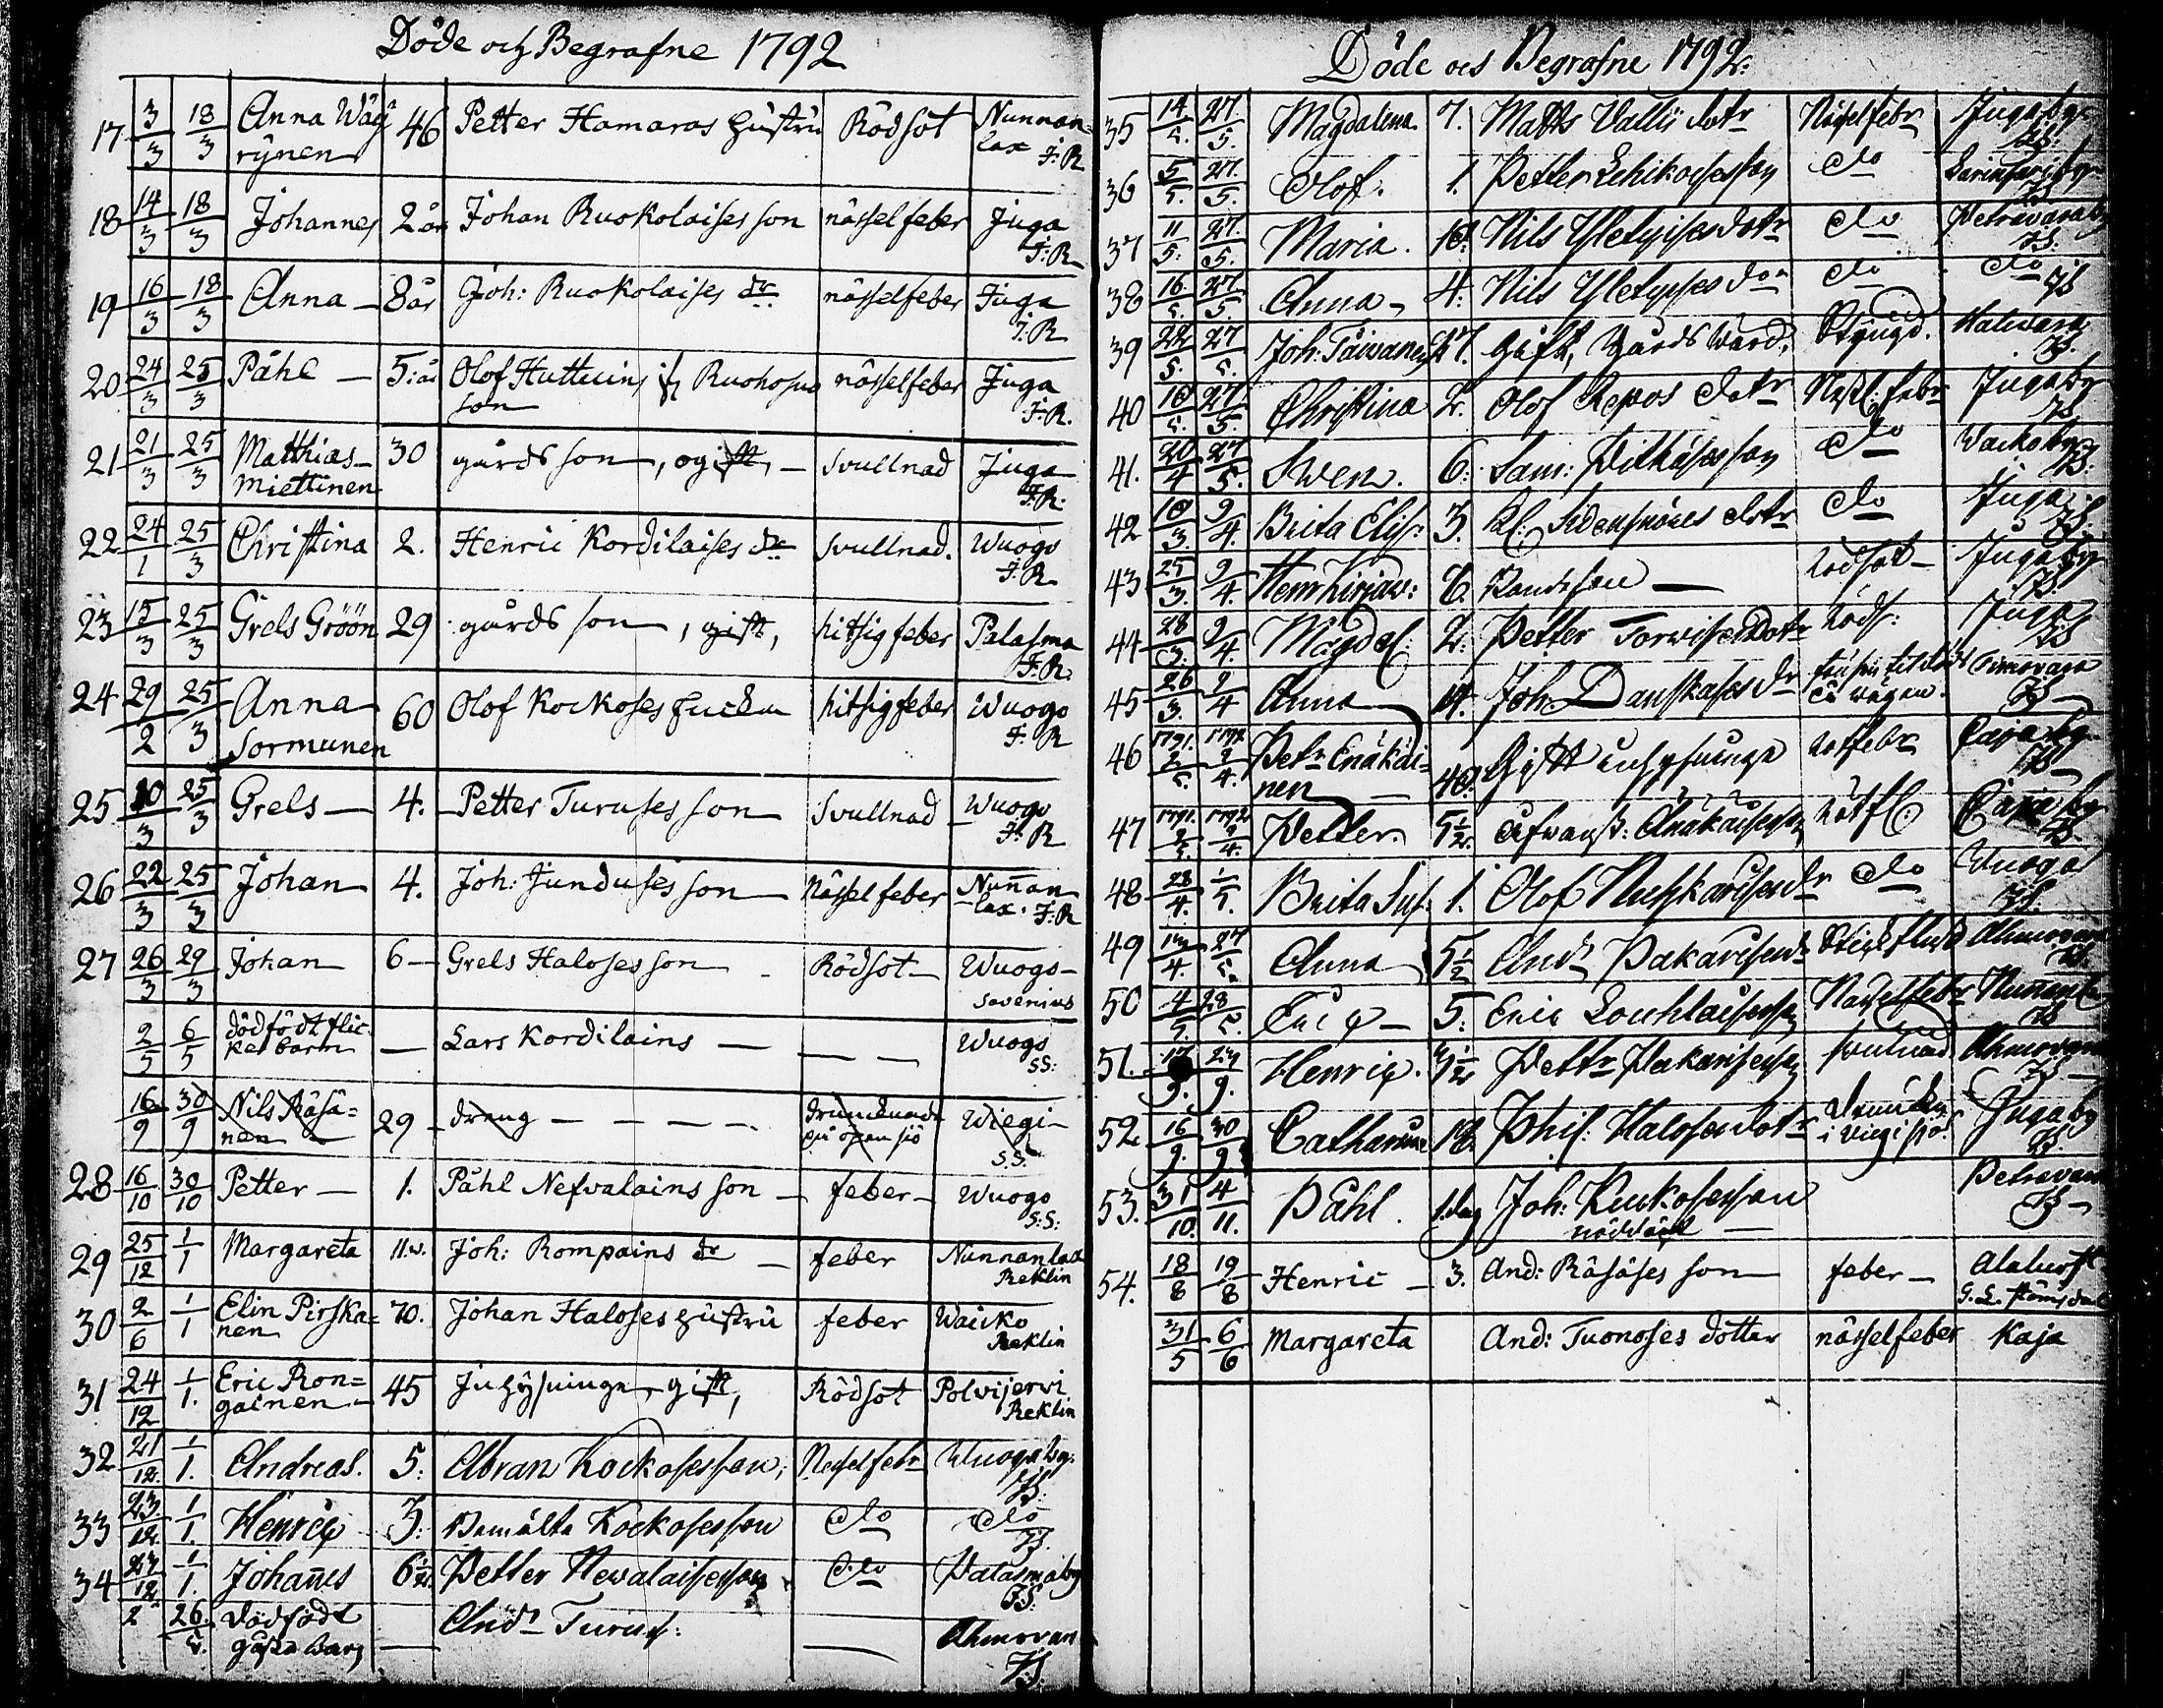 Döde och Begrafne 1792
17 3/3 18/3 Anna Wäy 46 Petter Hamaras hustru Rödsot Nunnan=
rÿnen lax J:R
18 14/3 18/3 Johannes 2 år Johan Ruokolaises son nässelfeber Juga
J:R
19 16/3 18/3 Anna — 8 år Joh: Ruokolaises dr nässelfeber Juga
J:R
20 24/3 25/3 Påhl — 5: år Olof Huttuins Ruohosus nässelfeber Juga
son J:R.
21 21/3 25/3 Matthias 30 gårds son, ogift, — svullnad Juga
Miettinen J:R.
22 24/1 25/3 Christina 2. Henric Kordilaises dr svullnad. Wuogo
J:R
23 15/3 25/3 Grels Gröön 29 gårds son, gift, hitsig feber Palasma
J:R.
24 29/2 25/3 Anna 60 Olof Kockoses hitsig feber Wuogo
Sormunen J:R
25. 10/3 25/3 Grels — 4. Petter Turuses son Svullnad Wuogo
J:R
26 22/3 25/3 Johan 4. Joh: Junduses son Nässelfeber Nunnan
lax. J:R
27 26/3 29/3 Johan 6 — Grels Haloses son Rödsot Wuogo
Sovenius
2/5 6/5 dödfödt flic
ke barn — Lars Kordilains — — — Wuogo
SS:
16/9 30/9 Nils Räsä= 29 dräng — — — — drunknade Wiegi
nen på öpen sjö S.S.
28 16/10 30/10 Petter — 1. Påhl Nefvalains son — feber — Wuogo
S:S:
29 25/12 1/1 Margareta 11.w. Joh: Rompains dr — feber Nunnanlax
Reklin
30 2/6 1/1 Elin Pirska= 70. Johan Haloses hustru feber Waicko
nen Reklin
31 24/12 1/1. Eric Ron= 45 Inhÿsninge, gift, Rödsot Polvijervi
gainen — Reklin
32 21/12. 1/1. Andreas. 5: Abran Kockosesson; Nesselfebr Wuogo by:
JS.
33 23/12. 1/1. Henric 3: Kockosesson do do
JS.
34 27/12 1/1. Johañes 6½. Petter Newalaisesson do Palasmaby
JS.
2 26/5. Dödfödt Andr Turus: Ahmovara
gåsse barn — — JS.
Döde och Begrafne 1792:
35 14/5. 27/5. Magdalena 7. Matts Vallii dotr Näselfebr Jugaby
JS.
36 5/5. 27./5. Olof. 1. Petter Lehikoisesson do Larinsari by
JS
37 11/5. 27./5. Maria. 10. Nils Yletyises dotr do Petrovara by
JS.
38 16/5. 27/5. Anna — 4: Nils Yletyises dr do do
JS
39 22/5. 27/5. Joh: Taivanen 47. Gift, Gårds Wärd, Styngd. Halivara
JS.
40 10/5. 27/5. Christina 2. Olof Repos dotr Neßl: febr Jugaby
JS
41. 20/4 27/5. Swen. 6: Sam: Pitkäses son do Waickoby
JS.
42 10/3. 9/4. Brita Elis: 3. Kl: dotr do Juga
JS.
43 25/3. 9/4. Henr Kirjaw: 6. — Rödsot — Jugaby
JS.
44 28/3. 9/4. Magdal: 2. Petter Torwises Dotr Röds: Juga
JS
45 26/3. 9/4 Anna 14. Joh: Danskases dr Timovara
på wägen. JS
46 1791. 2/5. 1792 9/4. Petr Enäkäi= 40. Gift inhysninge rötfebr Caja by
nen JS
47 1791. 2/5. 1792 9/4. Petter. 5½. rötf: Caja by
JS.
48 28/4. 1/5. Brita Sus: 1. Olof Muskaisses dr do Wuogo
JS.
49 13/4. 27/5. Anna 5½ Andr Pakarises dr Ahmovara
JS.
50 4/5. 28/5. Eric — 5: Eric Louhlaisesson Nässelfebr Nunnanl
JS
51. 17/9. 29/9. Henric. Pettr Pakarisesson svulnad Ahmovara
JS
52. 16/9. 30/9 Catharina 18. Phil: Haloses dotr Drunkn: Jugaby
i wiegi sjö. JS.
53. 31/10. 4/11. Påhl. 1.dag Joh: Ruokosesson Petrovara
nöddöpt — JS
54. 18/8 19/8 Henric — 3. And: Räsäses son feber — Alaluost
G. L.
31/5 6/6 Margareta And: Tuonoses dotter nässelfeber Kaja